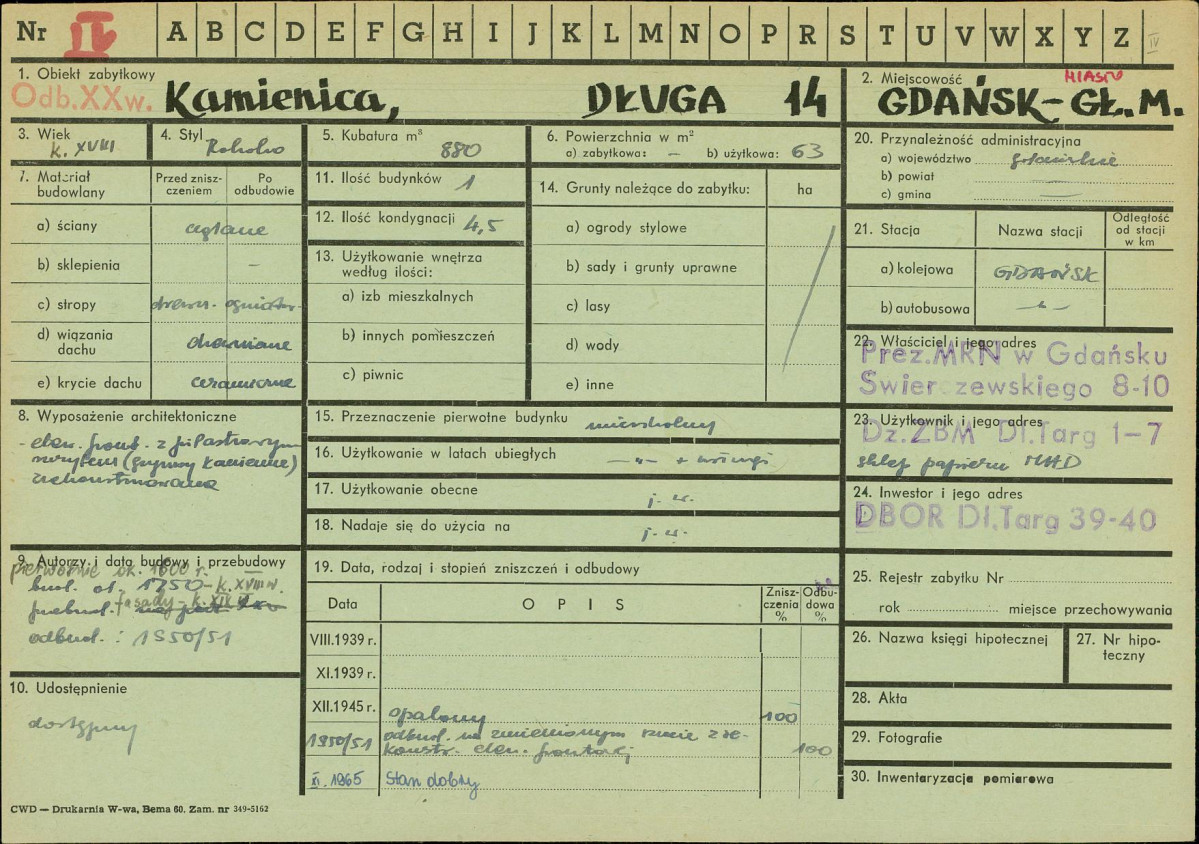 Nr IV A B C D E F G H I J K L M N O P R S T U V W X Y Z IV
1. Obiekt zabytkowy
Odb. XX w. Kamienica, DŁUGA 14
2. Miejscowość MIASTO
GDAŃSK - GŁ. M.
3. Wiek
k. XVIII
4. Styl
Rokoko
5. Kubatura m³
880
6. Powierzchnia w m²
a) zabytkowa: — b) użytkowa: 63
7. Materiał budowlany
Przed zniszczeniem
Po odbudowie
a) ściany ceglane
b) sklepienia —
c) stropy drewn. ogniotr.
d) wiązania dachu drewniane
e) krycie dachu ceramiczne
8. Wyposażenie architektoniczne
- elew. front. z pilastrowym
(gzymsy kamienne)
zrekonstruowana
9. Autorzy i data budowy i przebudowy
pierwotnie ok. 1600 r.
bud. ok. 1750 - k. XVIII w.
przebud. fasady - k. XIX w.
odbud. : 1950/51
10. Udostępnienie
dostępny
11. Ilość budynków 1
12. Ilość kondygnacji 4,5
13. Użytkowanie wnętrza
według ilości:
a) izb mieszkalnych
b) innych pomieszczeń
c) piwnic
14. Grunty należące do zabytku: ha
a) ogrody stylowe
b) sady i grunty uprawne
c) lasy
d) wody
e) inne
15. Przeznaczenie pierwotne budynku mieszkalny
16. Użytkowanie w latach ubiegłych —"— + usługi
17. Użytkowanie obecne j. w.
18. Nadaje się do użycia na j. w.
19. Data, rodzaj i stopień zniszczeń i odbudowy
Data OPIS Zniszczenia % Odbudowa %
VIII.1939 r.
XI.1939 r.
XII.1945 r. opalony 100
1950/51 odbud. na zmienionym rzucie z re-
konstr. elew. frontowej 100
XI. 1965 Stan dobry
20. Przynależność administracyjna
a) województwo gdańskie
b) powiat —
c) gmina —
21. Stacja Nazwa stacji Odległość od stacji w km
a) kolejowa GDAŃSK
b) autobusowa —"—
22. Właściciel i jego adres
Prez. MRN w Gdańsku
Swierczewskiego 8-10
23. Użytkownik i jego adres
Dz. ZBM Dl. Targ 1-7
sklep papieru MHD
24. Inwestor i jego adres
DBOR Dl. Targ 39-40
25. Rejestr zabytku Nr
rok miejsce przechowywania
26. Nazwa księgi hipotecznej
27. Nr hipoteczny
28. Akta
29. Fotografie
30. Inwentaryzacja pomiarowa
CWD — Drukarnia W-wa, Bema 60. Zam. nr 349-5162